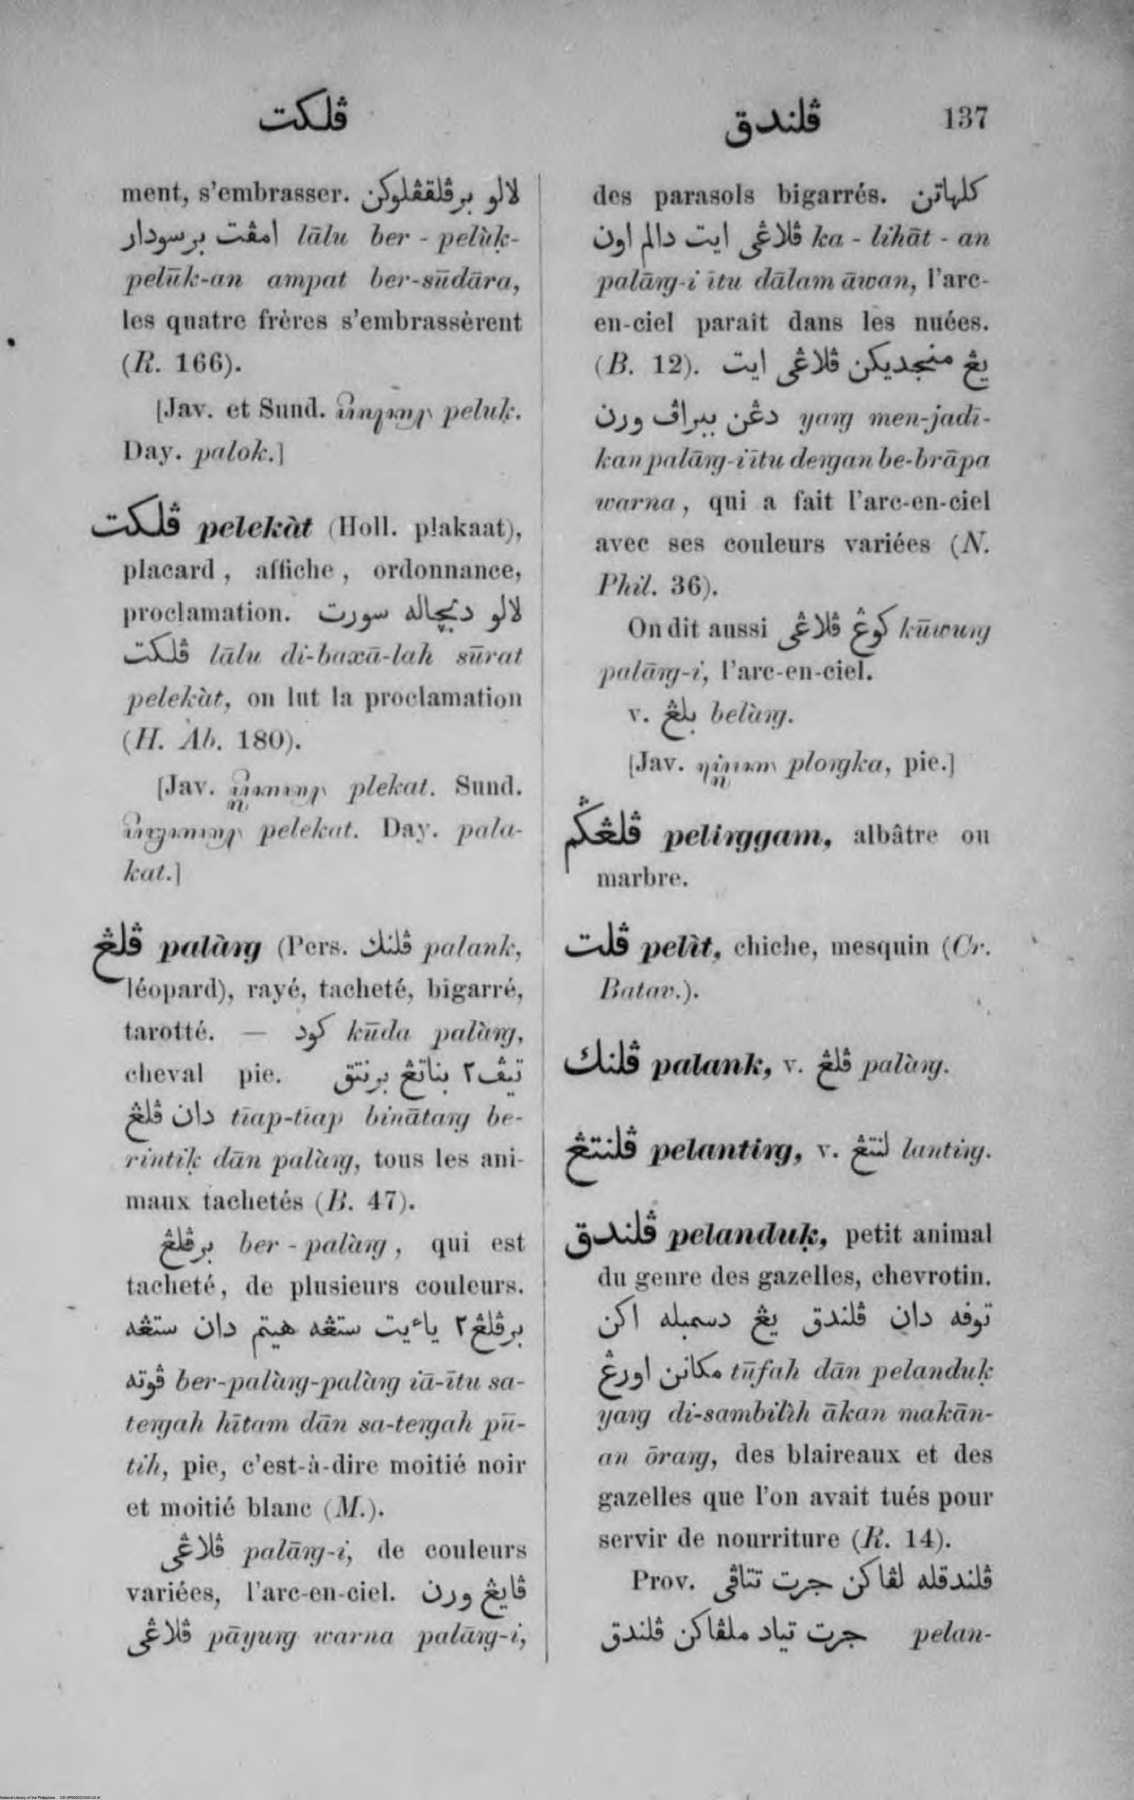 ڤلكت
ڤلندق 137
ment, s'embrasser. لالو برڤلقڤلوكن
امڤت برسودار lālu ber - pelùḳ-
pelūk-an ampat ber-sūdāra,
les quatre frères s'embrassèrent
(R. 166).
[Jav. et Sund. peluḳ.
Day. palok.]
ڤلكت pelekàt (Holl. plakaat),
placard, affiche, ordonnance,
proclamation. لالو دبچاله سورت
ڤلكت lālu di-baxā-lah sūrat
pelekàt, on lut la proclamation
(H. Ab. 180).
[Jav. plekat. Sund.
pelekat. Day. pala-
kat.]
ڤلڠ palàrg (Pers. ڤلنك palank,
léopard), rayé, tacheté, bigarré,
tarotté. — كود kūda palàrg,
cheval pie. تيڤ٢ بناتڠ برنتق
دان ڤلڠ tīap-tīap binātarg be-
rintiḳ dān palàrg, tous les ani-
maux tachetés (B. 47).
برڤلڠ ber - palàrg, qui est
tacheté, de plusieurs couleurs.
برڤلڠ٢ ياءيت ستڠه هيتم دان ستڠه
ڤوته ber-palàrg-palàrg iā-ītu sa-
tergah hītam dān sa-tergah pū-
tih, pie, c'est-à-dire moitié noir
et moitié blanc (M.).
ڤلاڠى palārg-i, de couleurs
variées, l'arc-en-ciel. ڤايڠ ورن
ڤلاڠى pāyurg warna palārg-i,
des parasols bigarrés. كلهاتن
ڤلاڠى ايت دالم اون ka - lihāt - an
palārg-i ītu dālam āwan, l'arc-
en-ciel parait dans les nuées.
(B. 12). يڠ منجديكن ڤلاڠى ايت
دڠن ببراڤ ورن yarg men-jadī-
kan palārg-i ītu dergan be-brāpa
warna, qui a fait l'arc-en-ciel
avec ses couleurs variées (N.
Phil. 36).
On dit aussi كوڠ ڤلاڠى kūwurg
palārg-i, l'arc-en-ciel.
v. بلڠ belàrg.
[Jav. plorgka, pie.]
ڤلڠݢم pelirggam, albâtre ou
marbre.
ڤلت pelìt, chiche, mesquin (Cr.
Batav.).
ڤلنك palank, v. ڤلڠ palàrg.
ڤلنتڠ pelantirg, v. لنتڠ lantirg.
ڤلندق pelanduḳ, petit animal
du genre des gazelles, chevrotin.
توفه دان ڤلندق يڠ دسمبله اكن
مكانن اورڠ tūfah dān pelanduḳ
yarg di-sambilìh ākan makān-
an ōrarg, des blaireaux et des
gazelles que l'on avait tués pour
servir de nourriture (R. 14).
Prov. ڤلندقله لڤاكن جرت تتاڤى
جرت تياد ملڤاكن ڤلندق pelan-